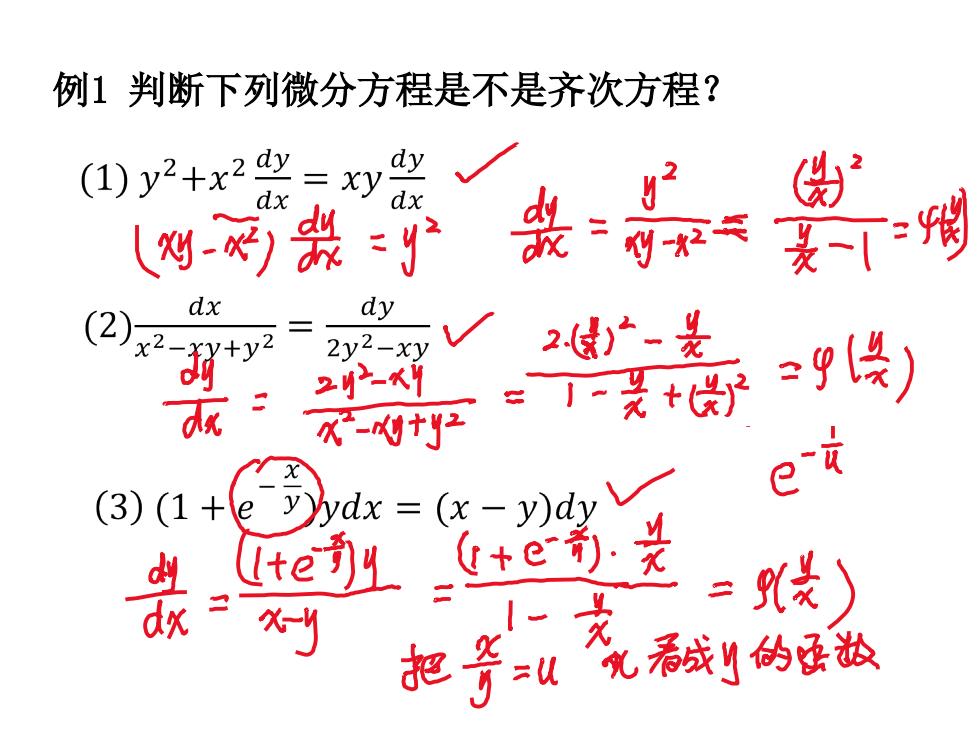 例1 判断下列微分方程是不是齐次方程?
(1) y²+x² dy/dx = xy dy/dx ✓
(xy-x²) dy/dx = y² dy/dx = y²/(xy-x²) = (y/x)²/(y/x-1) = φ(y/x)
(2) dx/(x²-xy+y²) = dy/(2y²-xy) ✓
dy/dx = (2y²-xy)/(x²-xy+y²) = (2·(y/x)²-y/x)/(1-y/x+(y/x)²) = φ(y/x)
e^(-1/u)
(3) (1+e^(-x/y))ydx = (x-y)dy ✓
dy/dx = (1+e^(-x/y))y/(x-y) = (1+e^(-x/y))·y/x/(1-y/x) = φ(y/x)
把 x/y=u x 看成y的函数